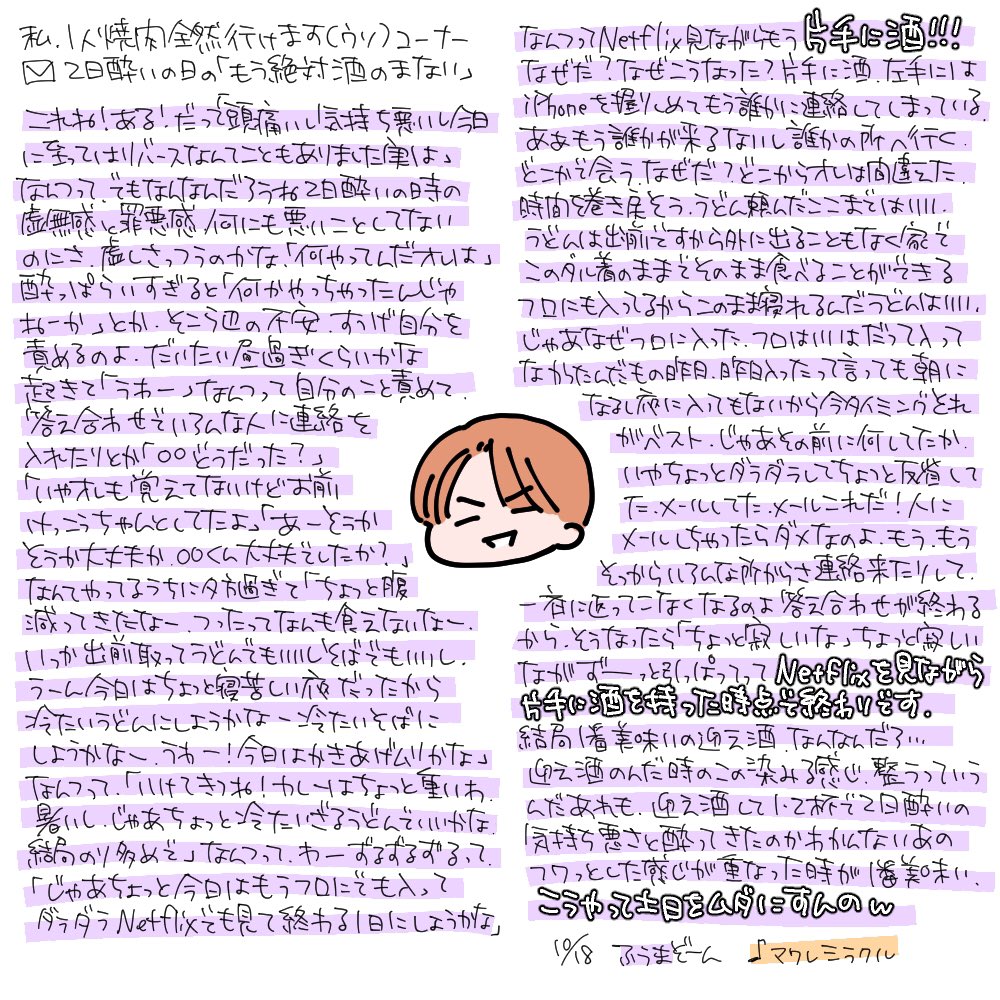 私、1人焼肉全然行けます(ウソ)コーナー
✉ 2日酔いの日の「もう絶対酒のまない」
これね!ある!だって「頭痛いし気持ち悪いし今日
に至ってはリバースなんてこともありました(室)は」
なんつって、でもなんなんだろうね2日酔いの時の
虚無感と罪悪感、何にも悪いことしてない
のにさ、虚しさっつうのかな、「何やってんだオレは」
酔っぱらいすぎると「何かやっちゃったんじゃ
ねーか」とか、そこら辺の不安、すっげ自分を
責めるのよ、だいたい昼過ぎくらいかな
起きて「うわー」なんつって自分のこと責めて、
答え合わせでいろんな人に連絡を
入れたりとか「〇〇どうだった?」
「いやオレも覚えてないけどお前
けっこうちゃんとしてたよ」「あーそうか
そうか大丈夫か、〇〇くん大丈夫でしたか?」
なんてやってるうちに夕方過ぎて「ちょっと腹
減ってきたなー、つったってなんも食えないなー、
いっか出前取ってうどんでもいいしそばでもいいし、
うーん今日はちょっと寝苦しい夜だったから
冷たいうどんにしようかなー冷たいそばに
しようかなー、うわー!今日はかきあげムリかな」
なんつって、「いけてきつね!カレーはちょっと重いわ、
暑いし、じゃあちょっと冷たいざるうどんでいいかな、
結局のり多めで」なんつって、わーずるずるずるって、
「じゃあちょっと今日はもうフロにでも入って
ダラダラNetflixでも見て終わる1日にしようかな」
なんつってNetflix見ながらもう片手に酒!!!
なぜだ?なぜこうなった?片手に酒、左手には
iPhoneを握りしめてもう誰かに連絡してしまっている。
ああもう誰かが来るないし誰かの所へ行く、
どこかで会う、なぜだ?どこからオレは間違えた、
時間を巻き戻そう、うどん頼んだここまではいい、
うどんは出前ですから外に出ることもなく家で
このダル着のままでそのまま食べることができる
フロにも入ってるからこのまま寝れるんだうどんはいい、
じゃあなぜフロに入った、フロはいいはだって入って
なかったんだもの昨日、昨日入ったって言っても朝に
なるし夜に入ってもないから今タイミングとれ
がベスト、じゃあその前に何してたか、
いやちょっとダラダラしてちょっと反省して
た、メールしてた、メールこれだ!人に
メールしちゃったらダメなのよ、もう、もう
そっからいろんな所からさ連絡来たりして、
一夜に返ってこなくなるのよ答え合わせが終わる
から、そうなったら「ちょっと寂しいな」ちょっと寂しい
ながずーーっと引っぱってってNetflixを見ながら
片手に酒を持った時点で終わりです。
結局1番美味いの迎え酒、なんなんだろ…
迎え酒のんだ時のこの染みる感じ、整うっていう
んだあれも、迎え酒して1、2杯で2日酔いの
気持ち悪さと酔ってきたのかわかんないあの
フワっとした感じが重なった時が1番美味い、
こうやって土日をムダにすんのw
10/18 ふうまどーん ♪マワレミラクル